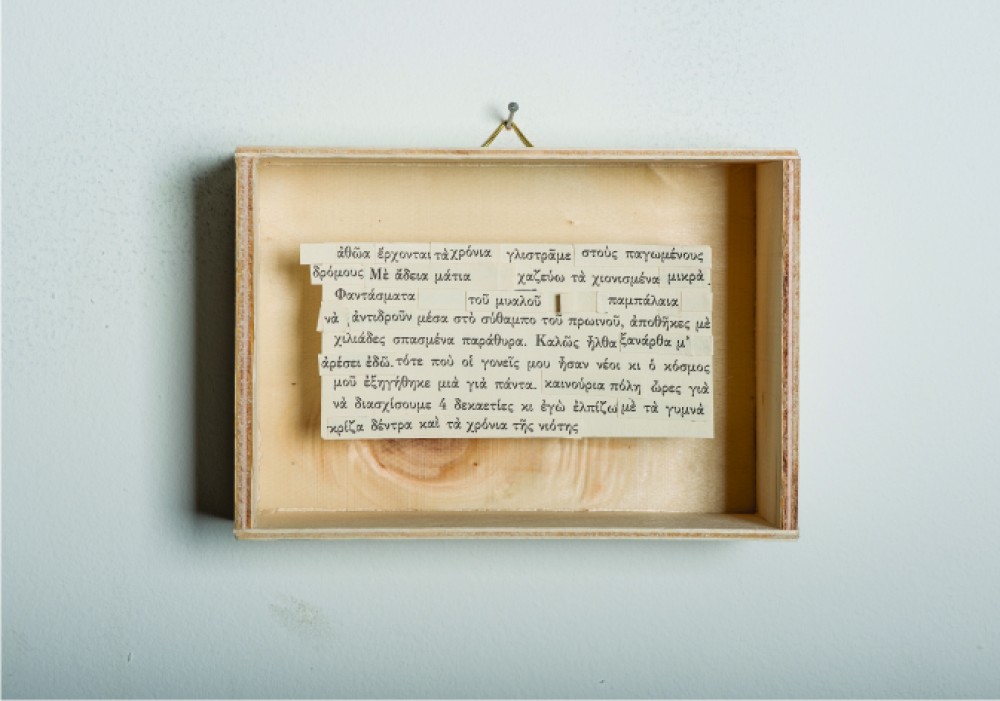 ἀθῶα ἔρχονται τὰ χρόνια γλιστρᾶμε στοὺς παγωμένους
δρόμους Μὲ ἄδεια μάτια χαζεύω τὰ χιονισμένα μικρὰ
Φαντάσματα τοῦ μυαλοῦ παμπάλαια
νὰ ἀντιδροῦν μέσα στὸ σύθαμπο τοῦ πρωινοῦ, ἀποθῆκες μὲ
χιλιάδες σπασμένα παράθυρα. Καλῶς ἦλθα ξανάρθα μ'
ἀρέσει ἐδῶ. τότε ποὺ οἱ γονεῖς μου ἦσαν νέοι κι ὁ κόσμος
μοῦ ἐξηγήθηκε μιὰ γιὰ πάντα. καινούρια πόλη ὧρες γιὰ
νὰ διασχίσουμε 4 δεκαετίες κι ἐγὼ ἐλπίζω μὲ τὰ γυμνὰ
γκρίζα δέντρα καὶ τὰ χρόνια τῆς νιότης